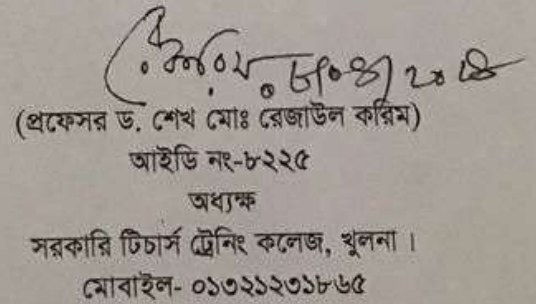 (প্রফেসর ড. শেখ মোঃ রেজাউল করিম)
আইডি নং-৮২২৫
অধ্যক্ষ
সরকারি টিচার্স ট্রেনিং কলেজ, খুলনা ।
মোবাইল- ০১৩২১২৩১৮৬৫